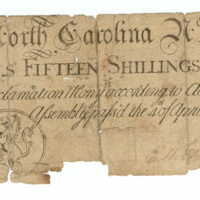 North Carolina No
S FIFTEEN SHILLINGS
clamation Money according to A
Assembly pass'd the 4 of April